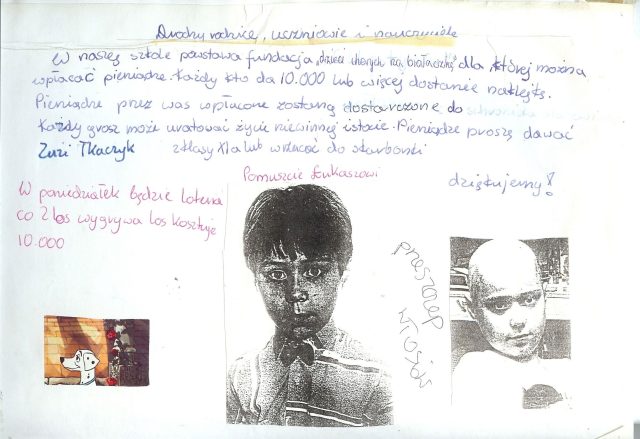 Drodzy rodzice, uczniowie i nauczyciele
W naszej szkole powstawa fundacja „dzieci chorych na białaczkę" dla której można
wpłacać pieniądze. Każdy kto da 10.000 lub więcej dostanie
Pieniądze przez was wpłacone zostaną dostarczone do
Każdy grosz może uratować życie niewinnej istocie. Pieniądze proszę dawać
Zuzi Tkaczyk z klasy lub wrzucać do skarbonki
Pomuszcie Łukaszowi
dziękujemy!
W poniedziałek będzie loteria
co 2 los wygrywa los kosztuje
10.000
przeszczep
włosów